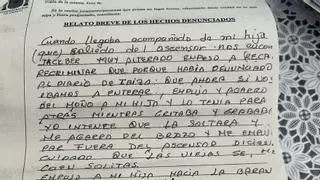 RELATO BREVE DE LOS HECHOS DENUNCIADOS
Cuando llegaba acompañado de mi hija
saliendo del ascensor nos
MUY ALTERADO EMPEZO A RECA
RECRIMINAR QUE PORQUE HABIA DENUNCIADO
AL DIARIO DE QUE AHORA SI NOS
IBAMOS A ENTERAR. EMPUJO Y AGARRO
DEL MOÑO A MI HIJA Y LO TENIA PARA
ATRAS MIENTRAS GRITABA Y GRABABA
YO INTENTE QUE LA SOLTARA Y
ME AGARRO DEL BRAZO Y ME EMPU
PAR FUERA DEL ASCENSOR DICIEN
CUIDADO QUE LAS VIEJAS SE
CAEN SOLITAS.
EMPUJO A MI HIJA HACIA LA BARAN